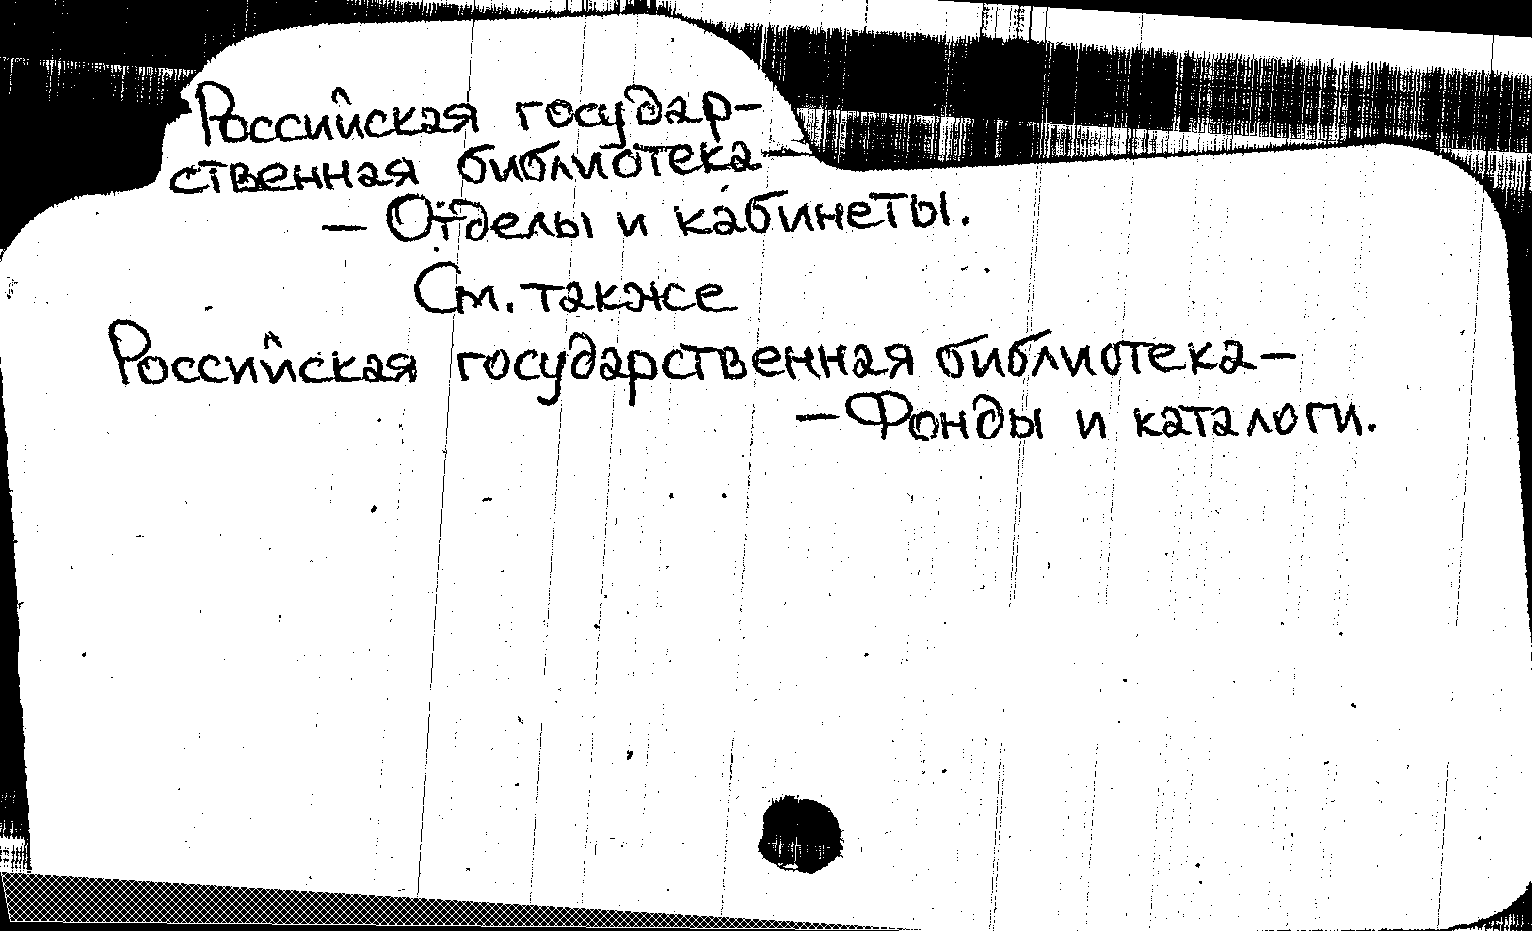 Российская государ-
ственная библиотека —
— Отделы и кабинеты.
См. также
Российская государственная библиотека —
— Фонды и каталоги.